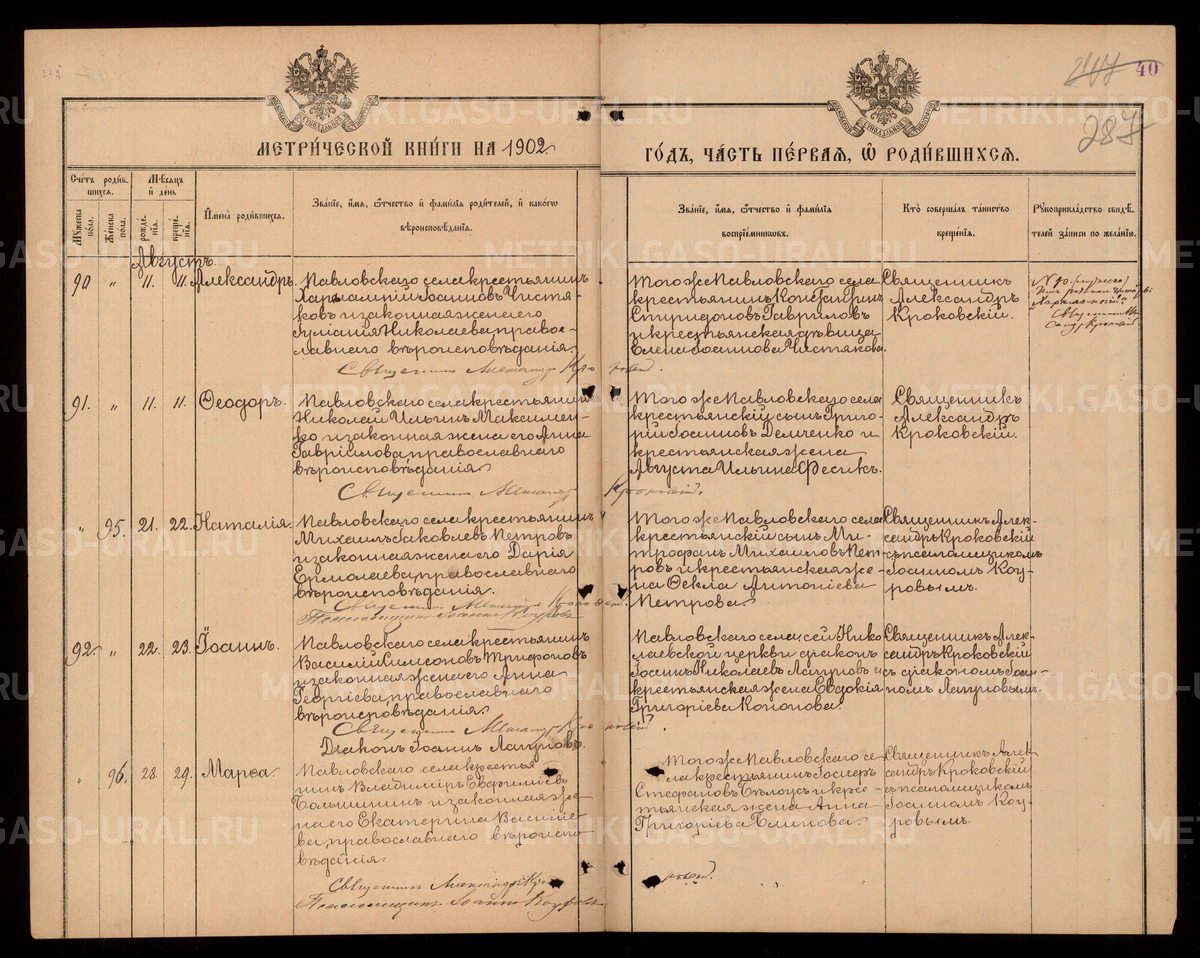 40
287
МЕТРИ́ЧЕСКОЙ КНИ́ГИ НА 1902
ГО́ДЪ, ЧА́СТЬ ПЕ́РВАЯ, Ѡ РОДИ́ВШИХСЯ.
Сче́тъ роди́в-
шихся.
Му́жеска по́ла.
Же́нска по́ла.
Мѣ́сяцъ
и҆ де́нь
рожде́нїя.
креще́нїя.
И҆мена̀ роди́вшихся.
Зва́нїе, и҆́мя, ѻ҆́тчество и҆ фами́лїя роди́телей, и҆ како́гѡ
вѣроисповѣ́данїя.
Зва́нїе, и҆́мя, ѻ҆́тчество и҆ фами́лїя
воспрїе́мникѡвъ.
Кто̀ соверша́лъ та́инство
креще́нїя.
Рꙋкоприкла́дство свидѣ́-
телей за́писи по жела́нїю.
Августъ.
90 " 11. 11. Александръ.
Павловскаго села крестьянинъ
Харлампій Іоанновъ Чистя-
ковъ и законная жена его
Іуліанія Николаева, правос-
лавнаго вѣроисповѣданія.
Священникъ Александръ Кроковскій.
Того же Павловскаго села
крестьянинъ Константинъ
Спиридоновъ Гавриловъ
и крестьянская дѣвица
Елена Іоаннова Чистякова.
Священникъ
Александръ
Кроковскій.
91. " 11. 11. Ѳеодоръ.
Павловскаго села крестьянинъ
Николай Ильинъ Максимен-
ко и законная жена его Анна
Гавріилова, православнаго
вѣроисповѣданія.
Священникъ Александръ Кроковскій.
Того же Павловскаго села
крестьянскій сынъ Григо-
рій Іоанновъ Демченко и
крестьянская жена
Августа Ильина Фесикъ.
Священникъ
Александръ
Кроковскій.
" 95. 21. 22. Наталія.
Павловскаго села крестьянинъ
Михаилъ Іаковлевъ Петровъ
и законная жена его Дарія
Ермолаева, православнаго
вѣроисповѣданія.
Священникъ Александръ Кроковскій.
Псаломщикъ Іоаннъ Коуровъ
Того же Павловскаго села
крестьянскій сынъ Ми-
трофанъ Михаиловъ Пет-
ровъ и крестьянская же-
на Ѳекла Антоніева
Петрова.
Священникъ Алек-
сандръ Кроковскій
съ псаломщикомъ
Іоанномъ Коу-
ровымъ.
92. " 22. 23. Іоаннъ.
Павловскаго села крестьянинъ
Василій Симеоновъ Трифоновъ
и законная жена его Анна
Георгіева, православнаго
вѣроисповѣданія.
Священникъ Александръ Кроковскій.
Діаконъ Іоаннъ Лагуновъ.
Павловскаго села, сей Нико-
лаевской церкви діаконъ
Іоаннъ Николаевъ Лагуновъ и
крестьянская жена Евдокія
Григоріева Кononова.
Священникъ Алек-
сандръ Кроковскій
съ діакономъ Іоан-
номъ Лагуновымъ.
" 96. 28. 29. Марѳа.
Павловскаго села крестья-
нинъ Владиміръ Евфиміевъ
и законная же-
на его Екатерина Василіе-
ва, православнаго вѣроиспо-
вѣданія.
Священникъ Александръ Кроковскій.
Псаломщикъ Іоаннъ Коуровъ
Того же Павловскаго се-
ла крестьянинъ Іосифъ
Стефановъ Бѣлоусъ и крес-
тьянская жена Анна
Григоріева Блинова.
Священникъ Алек-
сандръ Кроковскій
съ псаломщикомъ
Іоанномъ Коу-
ровымъ.
METRIKI.GASO-URAL.RU